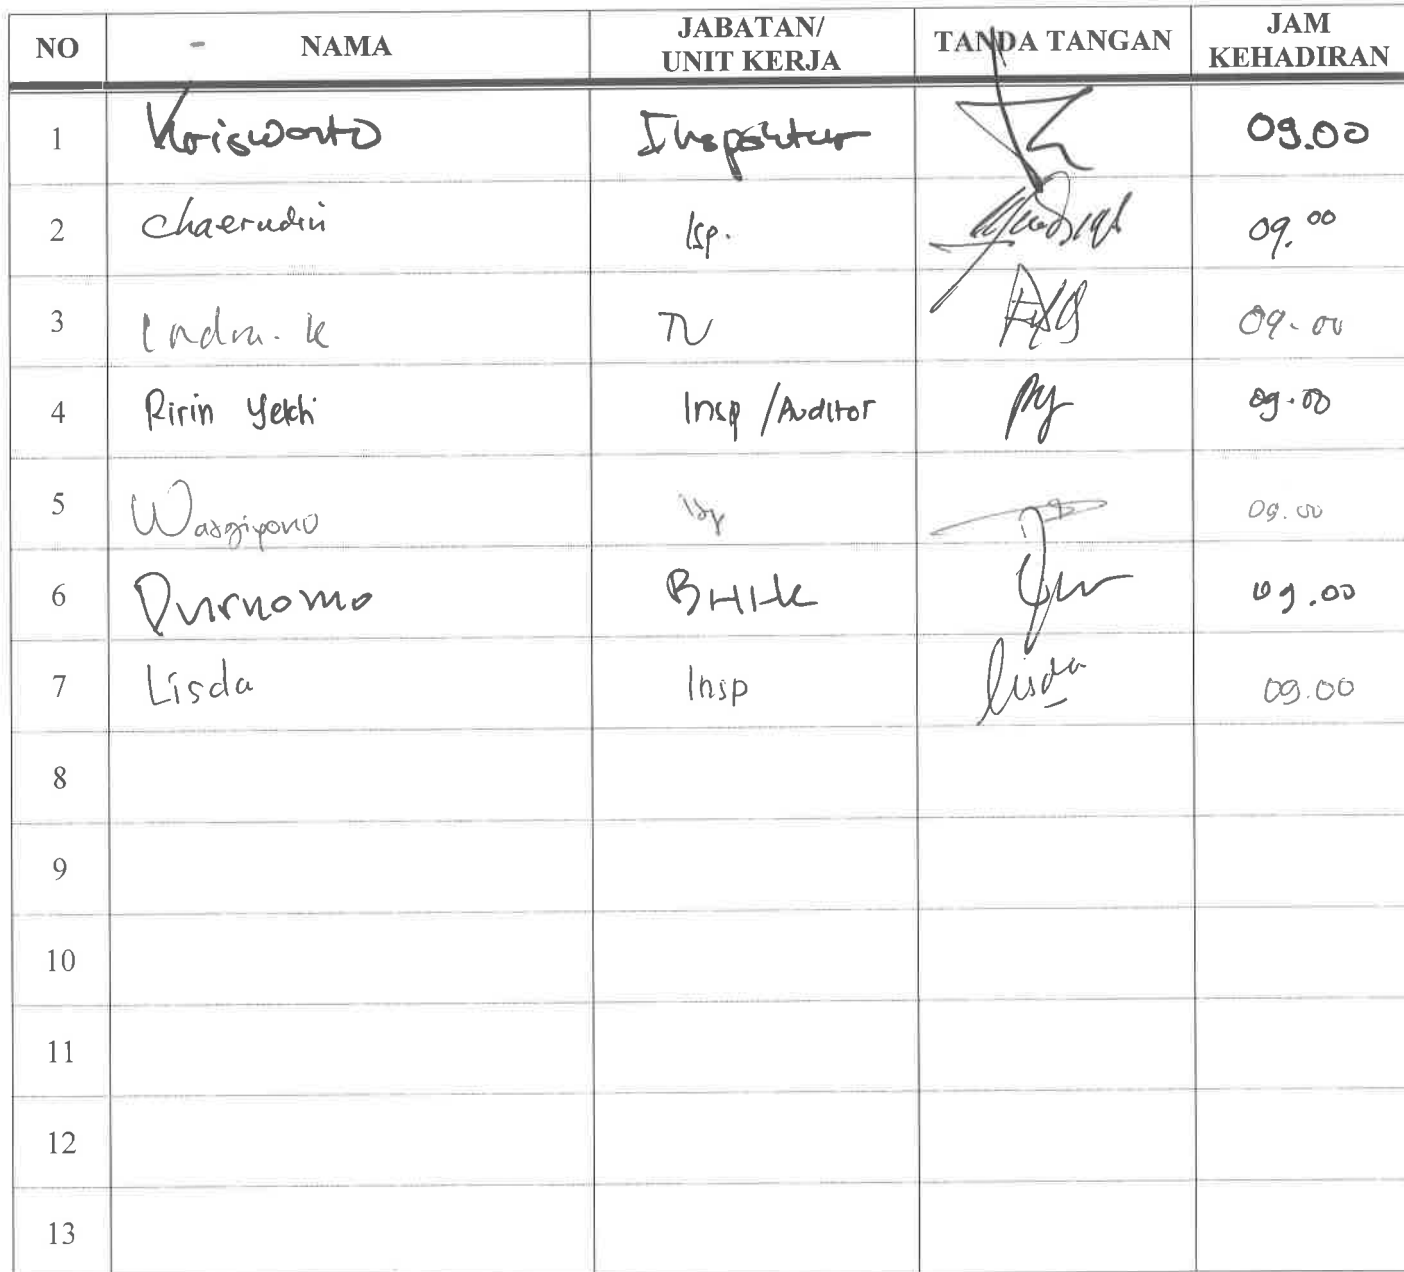 NO NAMA JABATAN/ UNIT KERJA TANDA TANGAN JAM KEHADIRAN
1 Kriswanto Inspektur 09.00
2 Chaerudin Isp. 09.00
3 Indra. K TU 09.00
4 Ririn Yekti Insp / Auditor 09.00
5 Wasgiyono 09.00
6 Purnomo 09.00
7 Lisda Insp Lisda 09.00
8
9
10
11
12
13